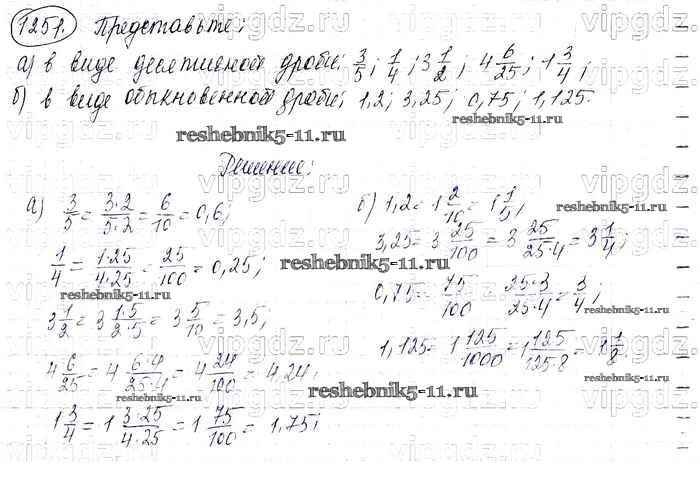 1251. Представьте:
а) в виде десятичной дроби: 3/5; 1/4; 3 1/2; 4 6/25; 1 3/4;
б) в виде обыкновенной дроби: 1,2; 3,25; 0,75; 1,125.
reshebnik5-11.ru
Решение:
а) 3/5 = 3·2/5·2 = 6/10 = 0,6;
1/4 = 1·25/4·25 = 25/100 = 0,25;
3 1/2 = 3 1·5/2·5 = 3 5/10 = 3,5;
4 6/25 = 4 6·4/25·4 = 4 24/100 = 4,24;
1 3/4 = 1 3·25/4·25 = 1 75/100 = 1,75;
б) 1,2 = 1 2/10 = 1 1/5;
3,25 = 3 25/100 = 3 25/25·4 = 3 1/4;
0,75 = 75/100 = 25·3/25·4 = 3/4;
1,125 = 1 125/1000 = 1 125/125·8 = 1 1/8.
reshebnik5-11.ru
reshebnik5-11.ru
reshebnik5-11.ru
reshebnik5-11.ru
reshebnik5-11.ru
reshebnik5-11.ru
vipgdz.ru